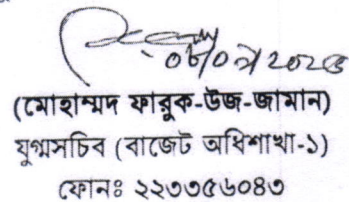 (মোহাম্মদ ফারুক-উজ-জামান)
যুগ্মসচিব (বাজেট অধিশাখা-১)
ফোনঃ ২২৩৩৫৬০৪৩